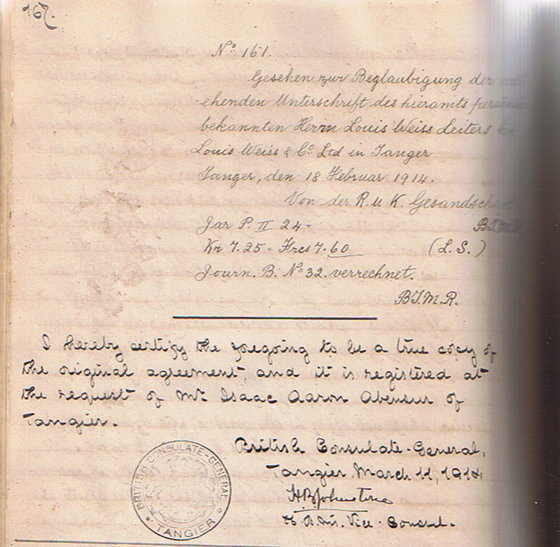 167.
No 161.
Gesehen zur Beglaubigung der
ehenden Unterschrift des hieramts
bekannten Herrn Louis Weiss Leiters
Louis Weiss & Co Ltd in Tanger
Tanger, den 18 Februar 1914.
Von der K. u K. Gesandscha
Tar P. II 24-
B.T.M.R.
Kr 7.25 - Frcs 7.60
(L. S.)
Journ. B. No 32. verrechnet.
B.T.M.R.
I hereby certify the foregoing to be a true copy of
the original agreement, and it is registered at
the request of Mr Isaac Aaron Abensur of
Tangier.
British Consulate-General,
Tangier, March 11, 1914
HBJohnstone
H. B. M. Vice-Consul.
BRITISH CONSULATE-GENERAL
TANGIER